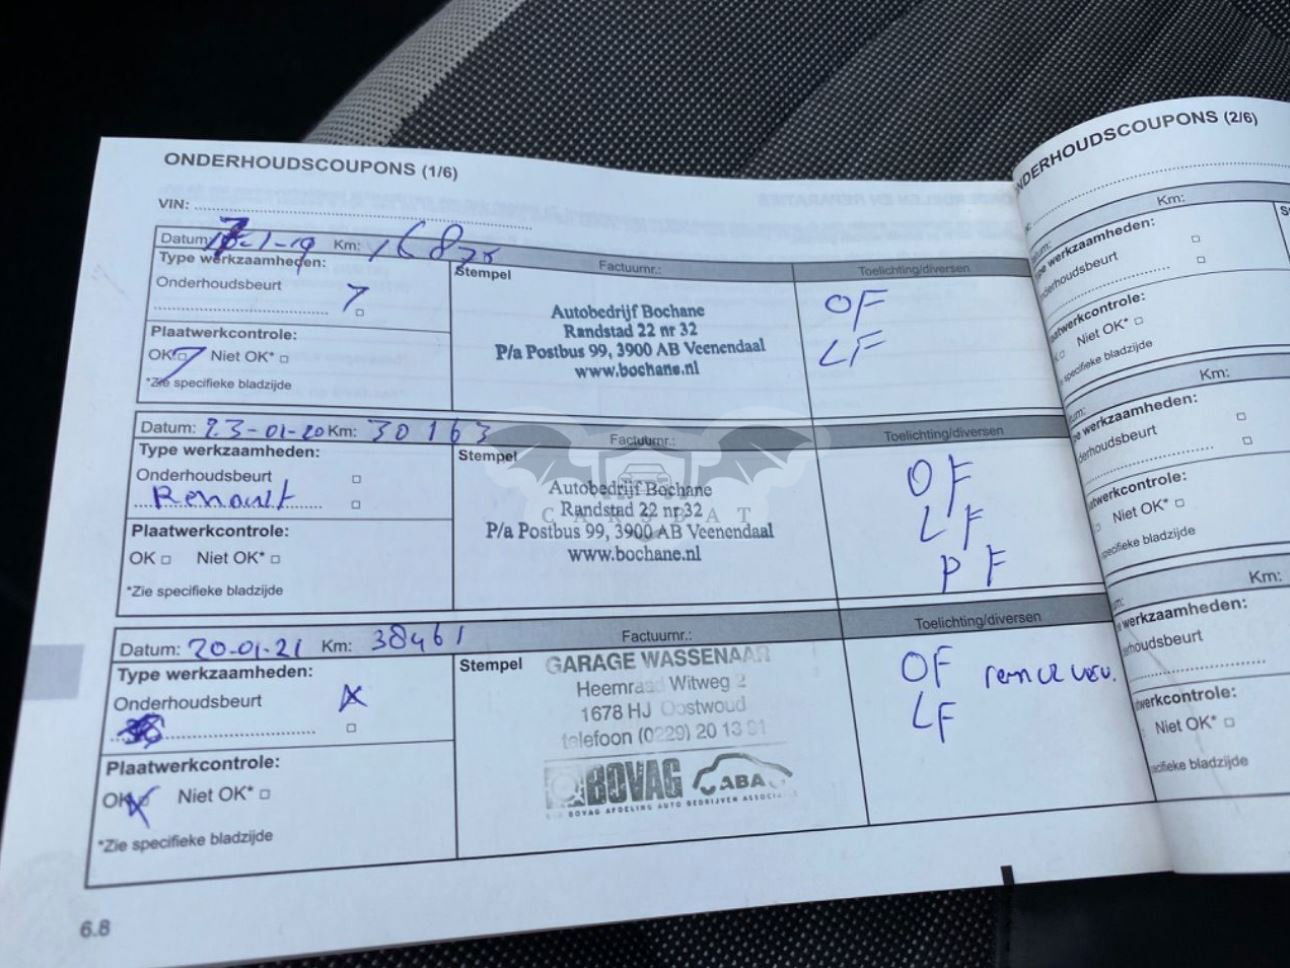 ONDERHOUDSCOUPONS (1/6)
VIN:
Datum: -1-19 Km: 168
Type werkzaamheden:
Onderhoudsbeurt
Plaatwerkcontrole:
OK Niet OK*
*Zie specifieke bladzijde
Stempel
Factuurnr.:
Autobedrijf Bochane
Randstad 22 nr 32
P/a Postbus 99, 3900 AB Veenendaal
www.bochane.nl
Toelichting/diversen
OF
LF
Datum: 23-01-20 Km: 30163
Type werkzaamheden:
Onderhoudsbeurt
Renault
Plaatwerkcontrole:
OK Niet OK*
*Zie specifieke bladzijde
Factuurnr.:
Stempel
Autobedrijf Bochane
Randstad 22 nr 32
P/a Postbus 99, 3900 AB Veenendaal
www.bochane.nl
CARSBAT
Toelichting/diversen
OF
LF
PF
Datum: 20-01-21 Km: 38461
Type werkzaamheden:
Onderhoudsbeurt
Plaatwerkcontrole:
OK Niet OK*
*Zie specifieke bladzijde
Factuurnr.:
Stempel
GARAGE WASSENAAR
Heemraad Witweg 2
1678 HJ Oostwoud
telefoon (0229) 20 13 91
BOVAG ABA
BOVAG AFDELING AUTO BEDRIJVEN
Toelichting/diversen
OF
LF
6.8
NDERHOUDSCOUPONS (2/6)
Km:
werkzaamheden:
nderhoudsbeurt
aatwerkcontrole:
Niet OK*
specifieke bladzijde
Km:
werkzaamheden:
nderhoudsbeurt
atwerkcontrole:
Niet OK*
specifieke bladzijde
Km:
werkzaamheden:
rhoudsbeurt
werkcontrole:
Niet OK*
specifieke bladzijde